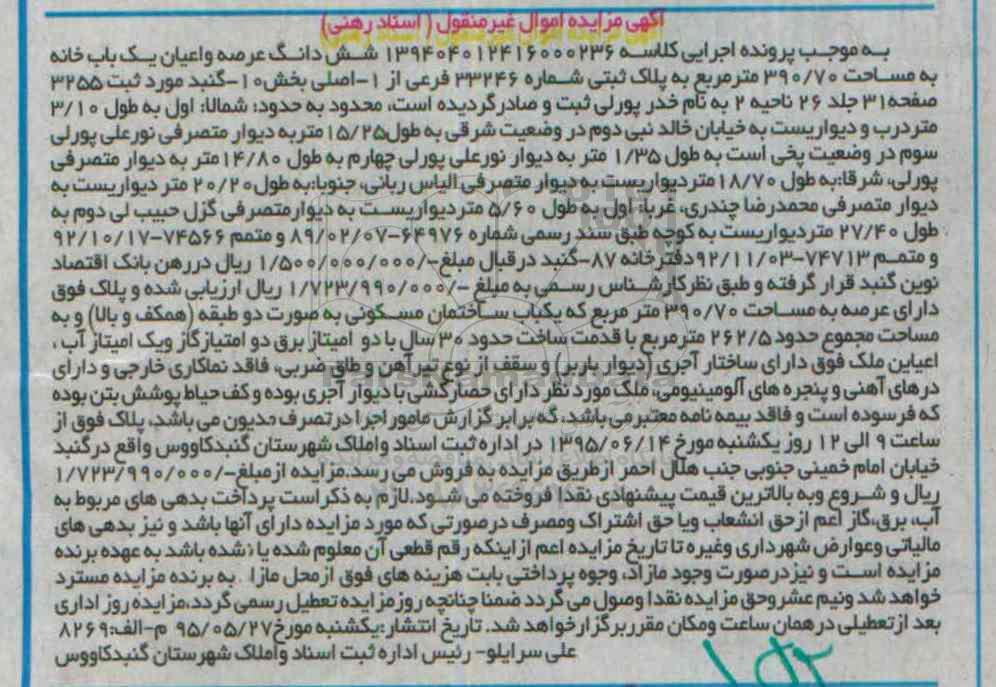 آگهی مزایده اموال غیرمنقول (اسناد رهنی)
به موجب پرونده اجرایی کلاسه ۱۳۹۴۰۴۰۱۲۴۱۶۰۰۰۲۳۶ شش دانگ عرصه واعیان یک باب خانه
به مساحت ۳۹۰/۷۰ مترمربع به پلاک ثبتی شماره ۳۳۲۴۶ فرعی از ۱-اصلی بخش۱۰-گنبد مورد ثبت ۳۲۵۵
صفحه۳۱ جلد ۲۶ ناحیه ۲ به نام خدر پورلی ثبت و صادرگردیده است، محدود به حدود: شمالا: اول به طول ۳/۱۰
متردرب و دیواریست به خیابان خالد نبی دوم در وضعیت شرقی به طول۱۵/۲۵ متربه دیوار متصرفی نورعلی پورلی
سوم در وضعیت پخی است به طول ۱/۳۵ متر به دیوار نورعلی پورلی چهارم به طول ۱۴/۸۰متر به دیوار متصرفی
پورلی، شرقا:به طول ۱۸/۷۰متردیواریست به دیوار متصرفی الیاس ربانی، جنوبا:به طول۲۰/۲۰ متر دیواریست به
دیوار متصرفی محمدرضا چندری، غربا: اول به طول ۵/۶۰ متردیواریست به دیوارمتصرفی گزل حبیب لی دوم به
طول ۲۷/۴۰ متردیواریست به کوچه طبق سند رسمی شماره ۶۴۹۷۶-۸۹/۰۲/۰۷ و متمم ۷۴۵۶۶-۹۲/۱۰/۱۷
و متمم ۷۴۷۱۳-۹۲/۱۱/۰۳دفترخانه ۸۷-گنبد درقبال مبلغ-/۱/۵۰۰/۰۰۰/۰۰۰ ریال دررهن بانک اقتصاد
نوین گنبد قرار گرفته و طبق نظرکارشناس رسمی به مبلغ -/۱/۷۲۳/۹۹۰/۰۰۰ ریال ارزیابی شده و پلاک فوق
دارای عرصه به مساحت ۳۹۰/۷۰ متر مربع که یکباب ساختمان مسکونی به صورت دو طبقه (همکف و بالا) و به
مساحت مجموع حدود ۲۶۲/۵ مترمربع با قدمت ساخت حدود ۳۰ سال با دو امیتاز برق دو امتیاز گاز ویک امیتاز آب ،
اعیاین ملک فوق دارای ساختار آجری (دیوار باربر) و سقف از نوع تیرآهن و طاق ضربی، فاقد نماکاری خارجی و دارای
درهای آهنی و پنجره های آلومینیومی، ملک مورد نظر دارای حصارکشی با دیوار آجری بوده و کف حیاط پوشش بتن بوده
که فرسوده است و فاقد بیمه نامه معتبر می باشد. که برابر گزارش مامور اجرا درتصرف مدیون می باشد، پلاک فوق از
ساعت ۹ الی ۱۲ روز یکشنبه مورخ ۱۳۹۵/۰۶/۱۴ در اداره ثبت اسناد واملاک شهرستان گنبدکاووس واقع درگنبد
خیابان امام خمینی جنوبی جنب هلال احمر ازطریق مزایده به فروش می رسد.مزایده ازمبلغ-/۱/۷۲۳/۹۹۰/۰۰۰
ریال و شروع وبه بالاترین قیمت پیشنهادی نقدا فروخته می شود.لازم به ذکر است پرداخت بدهی های مربوط به
آب، برق،گاز اعم ازحق انشعاب ویا حق اشتراک ومصرف درصورتی که مورد مزایده دارای آنها باشد و نیز بدهی های
مالیاتی وعوارض شهرداری وغیره تا تاریخ مزایده اعم ازاینکه رقم قطعی آن معلوم شده یا نشده باشد به عهده برنده
مزایده است و نیز درصورت وجود مازاد، وجوه پرداختی بابت هزینه های فوق ازمحل مازاد به برنده مزایده مسترد
خواهد شد ونیم عشروحق مزایده نقدا وصول می گردد ضمنا چنانچه روزمزایده تعطیل رسمی گردد،مزایده روز اداری
بعد ازتعطیلی درهمان ساعت ومکان مقرر برگزارخواهد شد. تاریخ انتشار:یکشنبه مورخ۹۵/۰۵/۲۷ م-الف:۸۲۶۹
علی سرایلو- رئیس اداره ثبت اسناد واملاک شهرستان گنبدکاووس